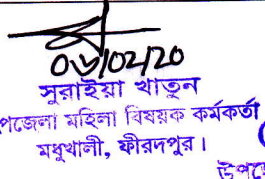 ০৬/০২/২০
সুরাইয়া খাতুন
পজেলা মহিলা বিষয়ক কর্মকর্তা
মধুখালী, ফরিদপুর।
উপজে